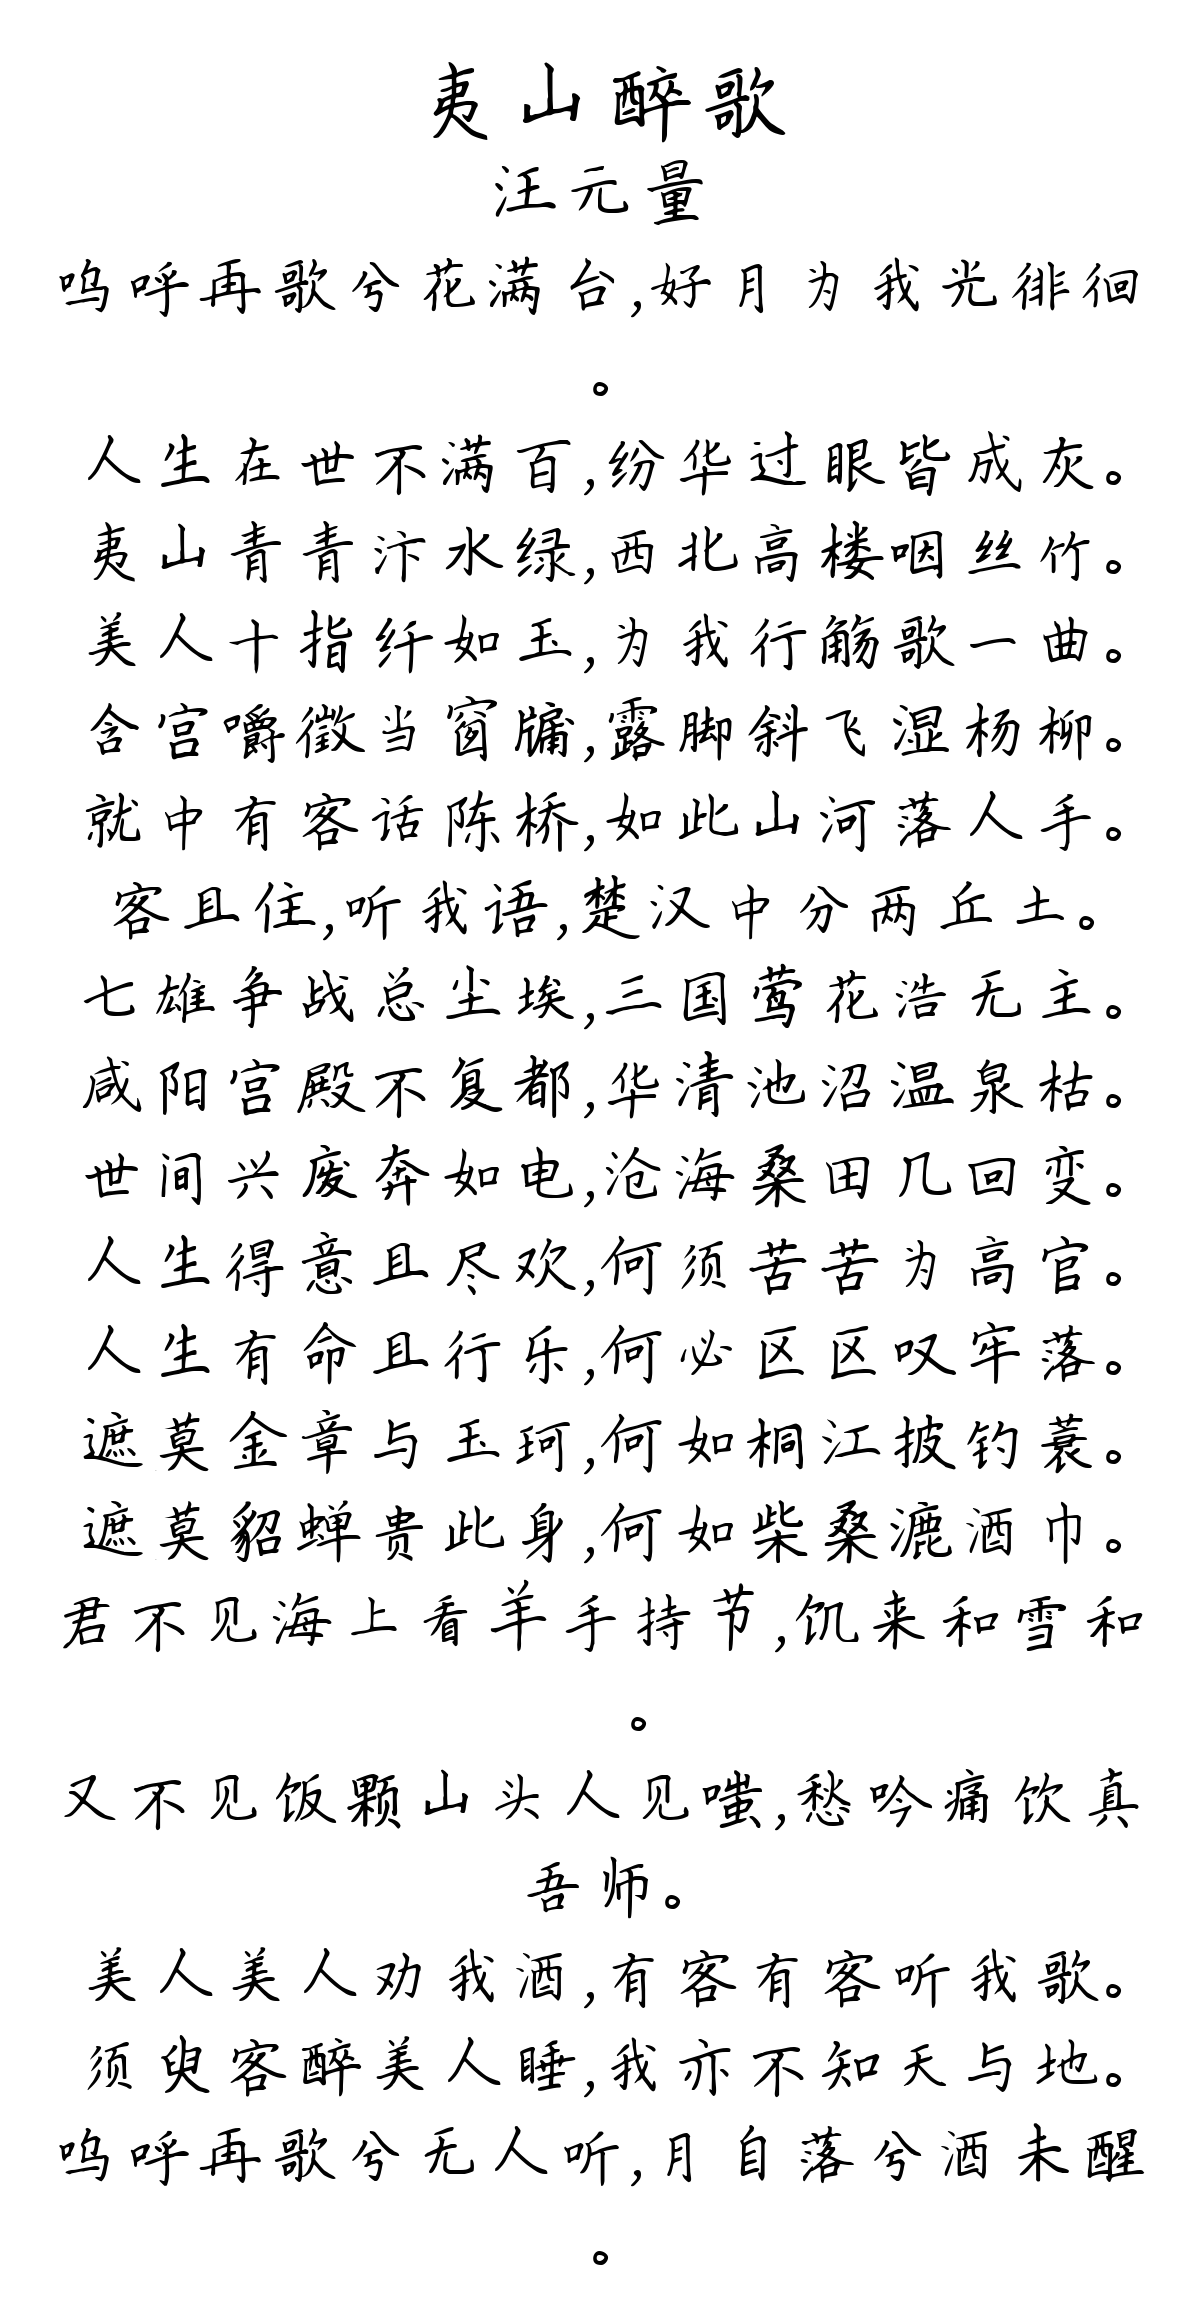 夷山醉歌
汪元量
呜呼再歌兮花满台,好月为我光徘徊
。
人生在世不满百,纷华过眼皆成灰。
夷山青青汴水绿,西北高楼咽丝竹。
美人十指纤如玉,为我行觞歌一曲。
含宫嚼徵当窗牖,露脚斜飞湿杨柳。
就中有客话陈桥,如此山河落人手。
客且住,听我语,楚汉中分两丘土。
七雄争战总尘埃,三国莺花浩无主。
咸阳宫殿不复都,华清池沼温泉枯。
世间兴废奔如电,沧海桑田几回变。
人生得意且尽欢,何须苦苦为高官。
人生有命且行乐,何必区区叹牢落。
遮莫金章与玉珂,何如桐江披钓蓑。
遮莫貂蝉贵此身,何如柴桑漉酒巾。
君不见海上看羊手持节,饥来和雪和
。
又不见饭颗山头人见嗤,愁吟痛饮真
吾师。
美人美人劝我酒,有客有客听我歌。
须臾客醉美人睡,我亦不知天与地。
呜呼再歌兮无人听,月自落兮酒未醒
。